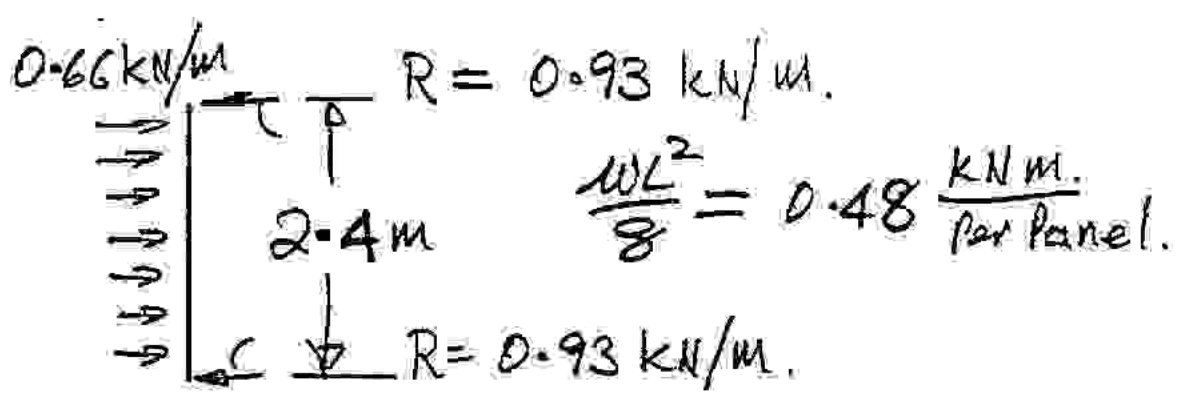 0.66 kN/m
R = 0.93 kN/m.
wL²/8 = 0.48 kNm. / Per Panel.
2.4 m
R = 0.93 kN/m.